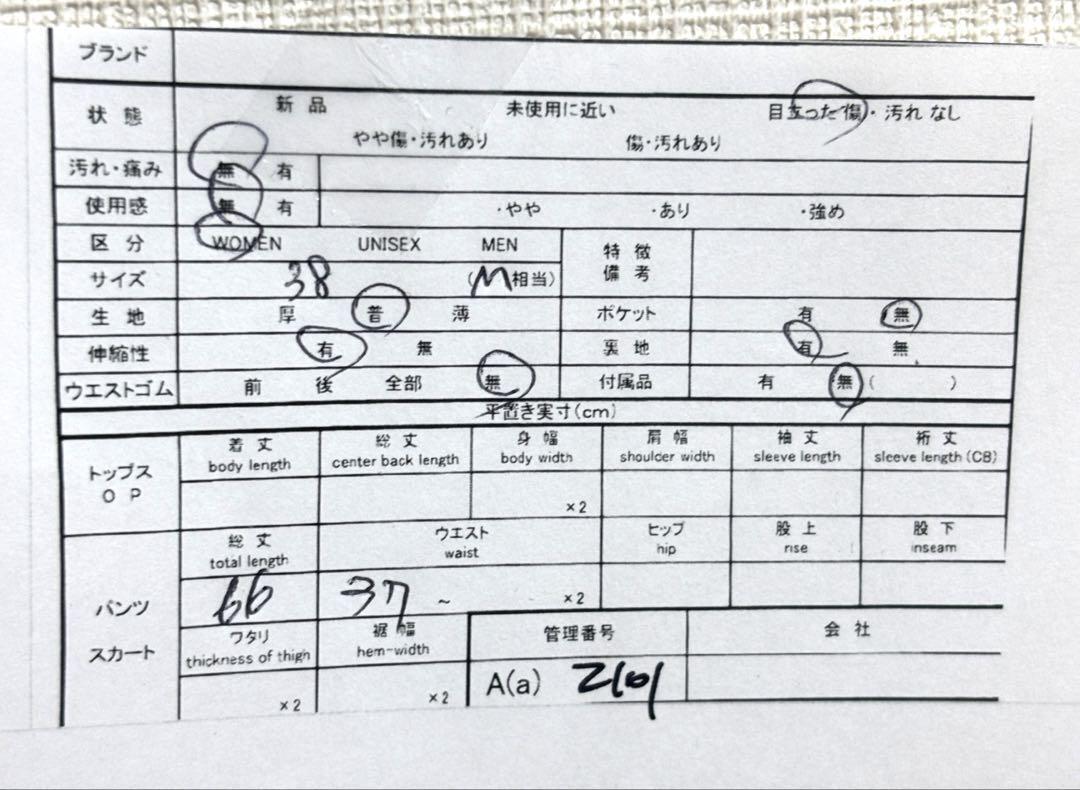 ブランド
状態 新品 未使用に近い 目立った傷・汚れ なし
やや傷・汚れあり 傷・汚れあり
汚れ・痛み 無 有
使用感 無 有 ・やや ・あり ・強め
区分 WOMEN UNISEX MEN 特徴
備考
サイズ 38 (M相当)
生地 厚 普 薄 ポケット 有 無
伸縮性 有 無 裏地 有 無
ウエストゴム 前 後 全部 無 付属品 有 無 ( )
平置き実寸(cm)
トップス
O P
着丈 総丈 身幅 肩幅 袖丈 裄丈
body length center back length body width shoulder width sleeve length sleeve length (CB)
×2
パンツ
スカート
総丈 ウエスト ヒップ 股上 股下
total length waist hip rise inseam
66 37 ~ ×2
ワタリ 裾幅 管理番号 会社
thickness of thigh hem-width
×2 ×2 A(a)